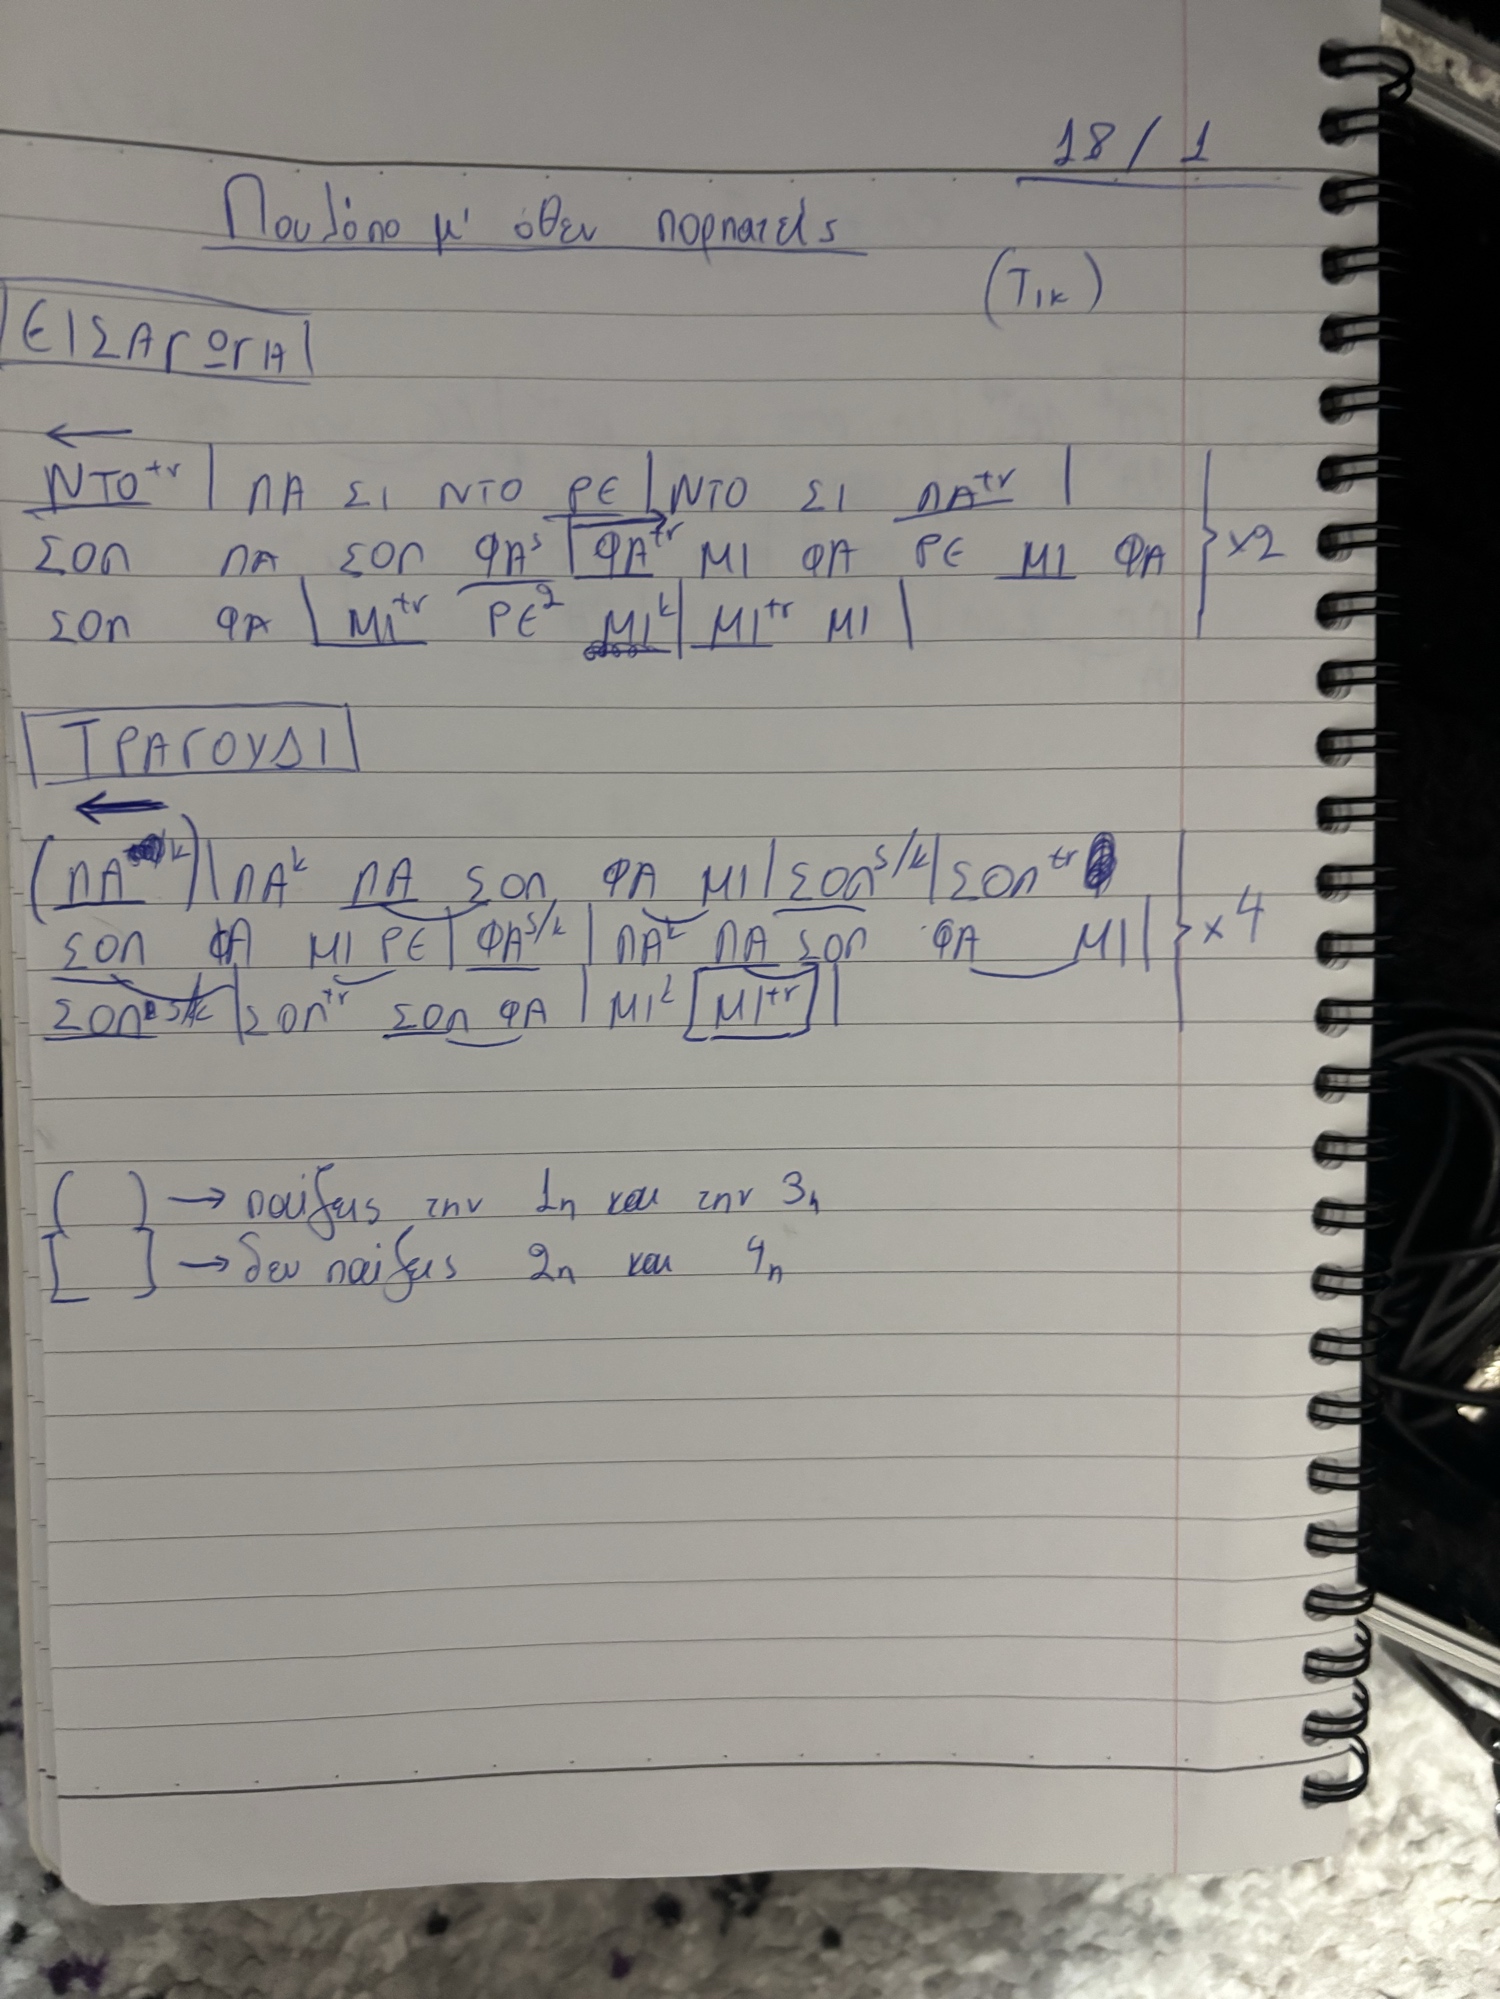 18/1
Πουλόπο μ' όθεν πορπατείς
(Τικ)
ΕΙΣΑΓΩΓΗ
ΝΤΟtr | ΛΑ ΣΙ ΝΤΟ ΡΕ | ΝΤΟ ΣΙ ΛΑtr |
ΣΟΛ ΛΑ ΣΟΛ ΦΑs | ΦΑtr ΜΙ ΦΑ ΡΕ ΜΙ ΦΑ } x2
ΣΟΛ ΦΑ | ΜΙtr ΡΕ2 ΜΙk | ΜΙtr ΜΙ |
ΤΡΑΓΟΥΔΙ
(ΛΑk) | ΛΑk ΛΑ ΣΟΛ ΦΑ ΜΙ | ΣΟΛs/k | ΣΟΛtr
ΣΟΛ ΦΑ ΜΙ ΡΕ | ΦΑs/k | ΛΑk ΛΑ ΣΟΛ ΦΑ ΜΙ | } x4
ΣΟΛs/k | ΣΟΛtr ΣΟΛ ΦΑ | ΜΙk [ΜΙtr] |
( ) → παίζεις την 1η και την 3η
[ ] → δεν παίζεις 2η και 4η